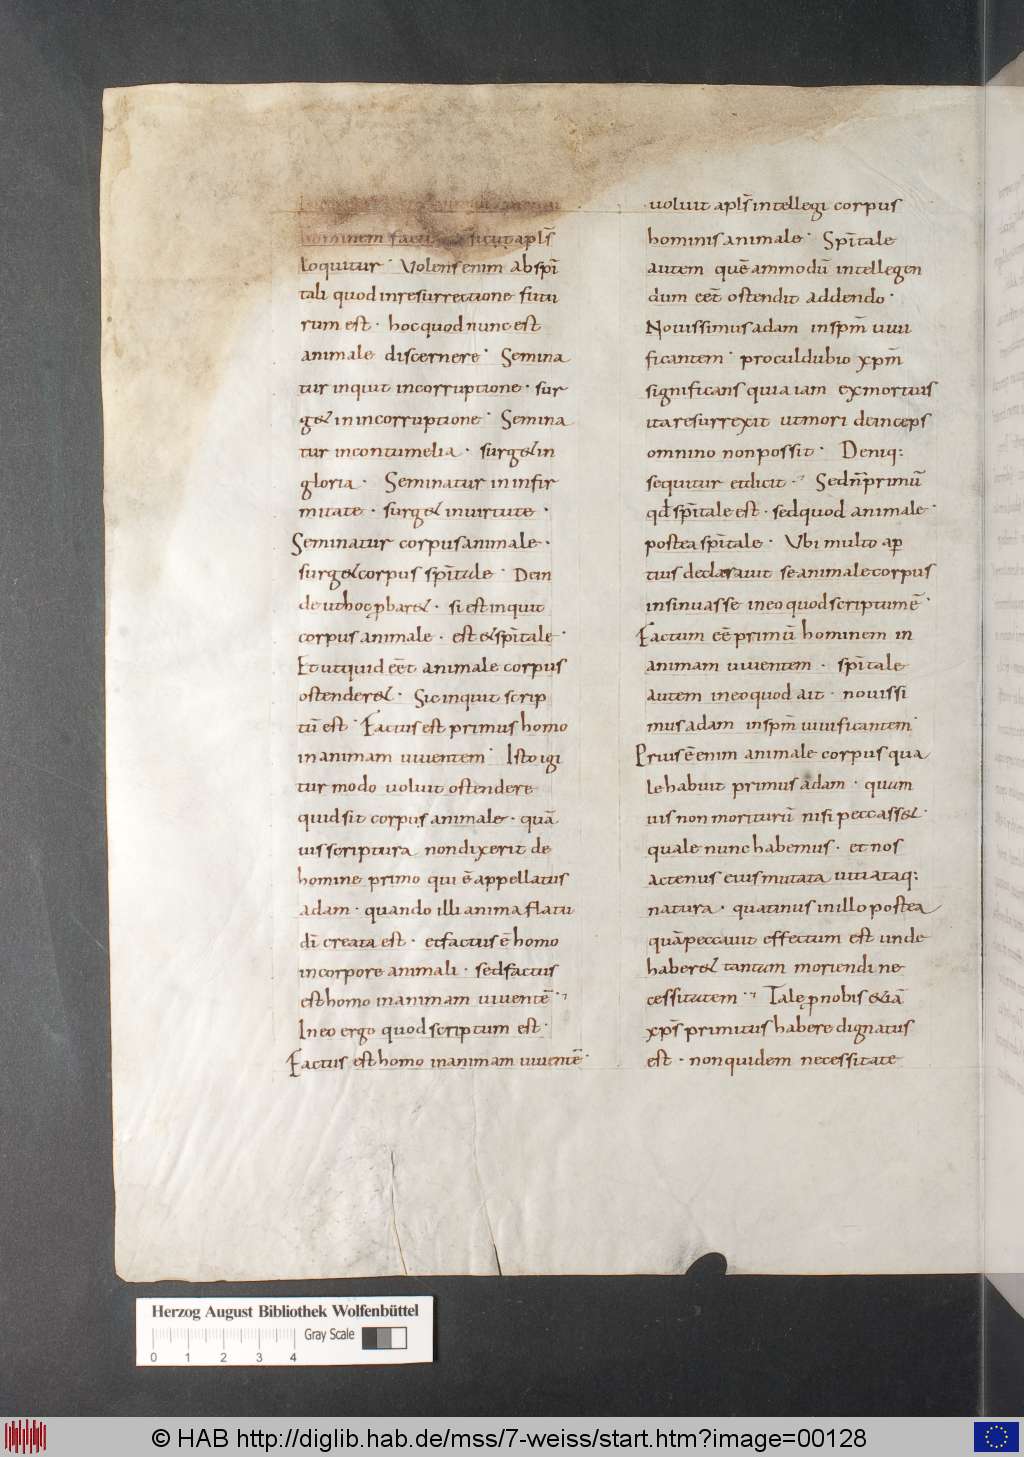 hominem factu sicut apl̄s
loquitur · Volens enim ab spi̅
tali quod in resurrectione futu
rum est · hoc quod nunc est
animale discernere · Semina
tur inquit incorruptione · sur
g& in incorruptione · Semina
tur incontumelia · surg& in
gloria · Seminatur in infir
mitate · surg& in uirtute ·
Seminatur corpus animale ·
surg& corpus spi̅tale · Dein
de ut hoc ꝓbar& · si est inquit
corpus animale · est & spi̅tale ·
Et ut quid ee̅t animale corpus
ostender& · Sic inquit scrip
tu̅ est · Factus est primus homo
in animam uiuentem · Isto igi
tur modo uoluit ostendere
quid sit corpus animale · qua̅
uis scriptura non dixerit de
homine primo qui e̅ appellatus
adam · quando illi anima flatu
di̅ creata est · et factus e̅ homo
in corpore animali · sed factus
est homo in animam uiuente̅ ·
In eo ergo quod scriptum est ·
Factus est homo in animam uiuente̅ ·
uoluit apl̄s intellegi corpus
hominis animale · Spi̅tale
autem que̅ammodu̅ intellegen
dum ee̅t ostendit addendo ·
Nouissimus adam in spm̅ uiui
ficantem · procul dubio xpm̅
significans qui a iam ex mortuis
ita resurrexit ut mori deinceps
omnino non possit · Deniq:
sequitur et dicit · Sed n̅ primu̅
qd̅ spi̅tale est · sed quod animale ·
postea spi̅tale · Ubi multo ap̲
tius declarauit se animale corpus
insinuasse in eo quod scriptum e̅ ·
Factum ee̅ primu̅ hominem in
animam uiuentem · spi̅tale
autem in eo quod ait · nouissi
mus adam in spm̅ uiuificantem ·
Prius e̅ enim animale corpus qua
le habuit primus adam · quam
uis non morituru̅ nisi peccass& ·
quale nunc habemus · et nos
actenus eius mutata uitiataq:
natura · quatinus in illo postea
qua̅ peccauit effectum est unde
haber& tantum moriendi ne
cessitatem · Tale ꝓ nobis & ia̅
xps̅ primitus habere dignatus
est · non quidem necessitate
Herzog August Bibliothek Wolfenbüttel
Gray Scale
0 1 2 3 4
© HAB http://diglib.hab.de/mss/7-weiss/start.htm?image=00128